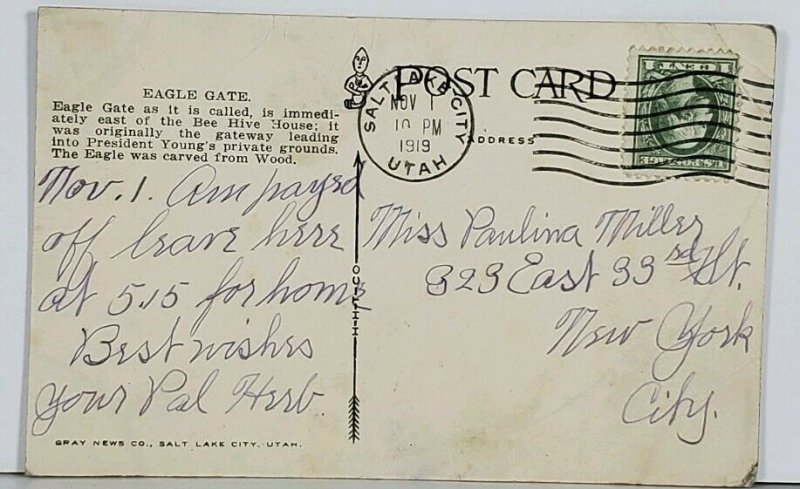 POST CARD
EAGLE GATE.
Eagle Gate as it is called, is immedi-
ately east of the Bee Hive House; it
was originally the gateway leading
into President Young's private grounds.
The Eagle was carved from Wood.
SALT LAKE CITY
NOV 1
10 PM
1919
UTAH
ADDRESS
Nov. 1. Am payed
off leave here
at 5.15 for home
Best wishes
your Pal Herb
Miss Paulina Miller
323 East 33rd St.
New York
City.
H-H-T-CO.
GRAY NEWS CO., SALT LAKE CITY, UTAH.